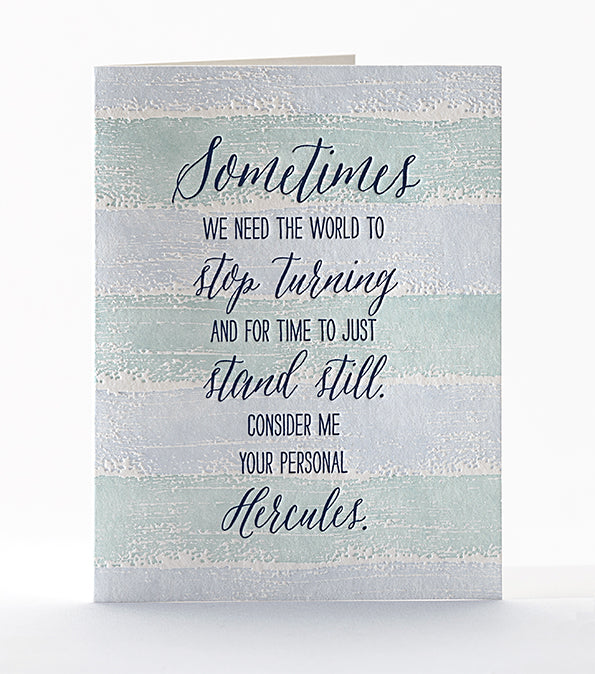 Sometimes
WE NEED THE WORLD TO
stop turning
AND FOR TIME TO JUST
stand still.
CONSIDER ME
YOUR PERSONAL
Hercules.